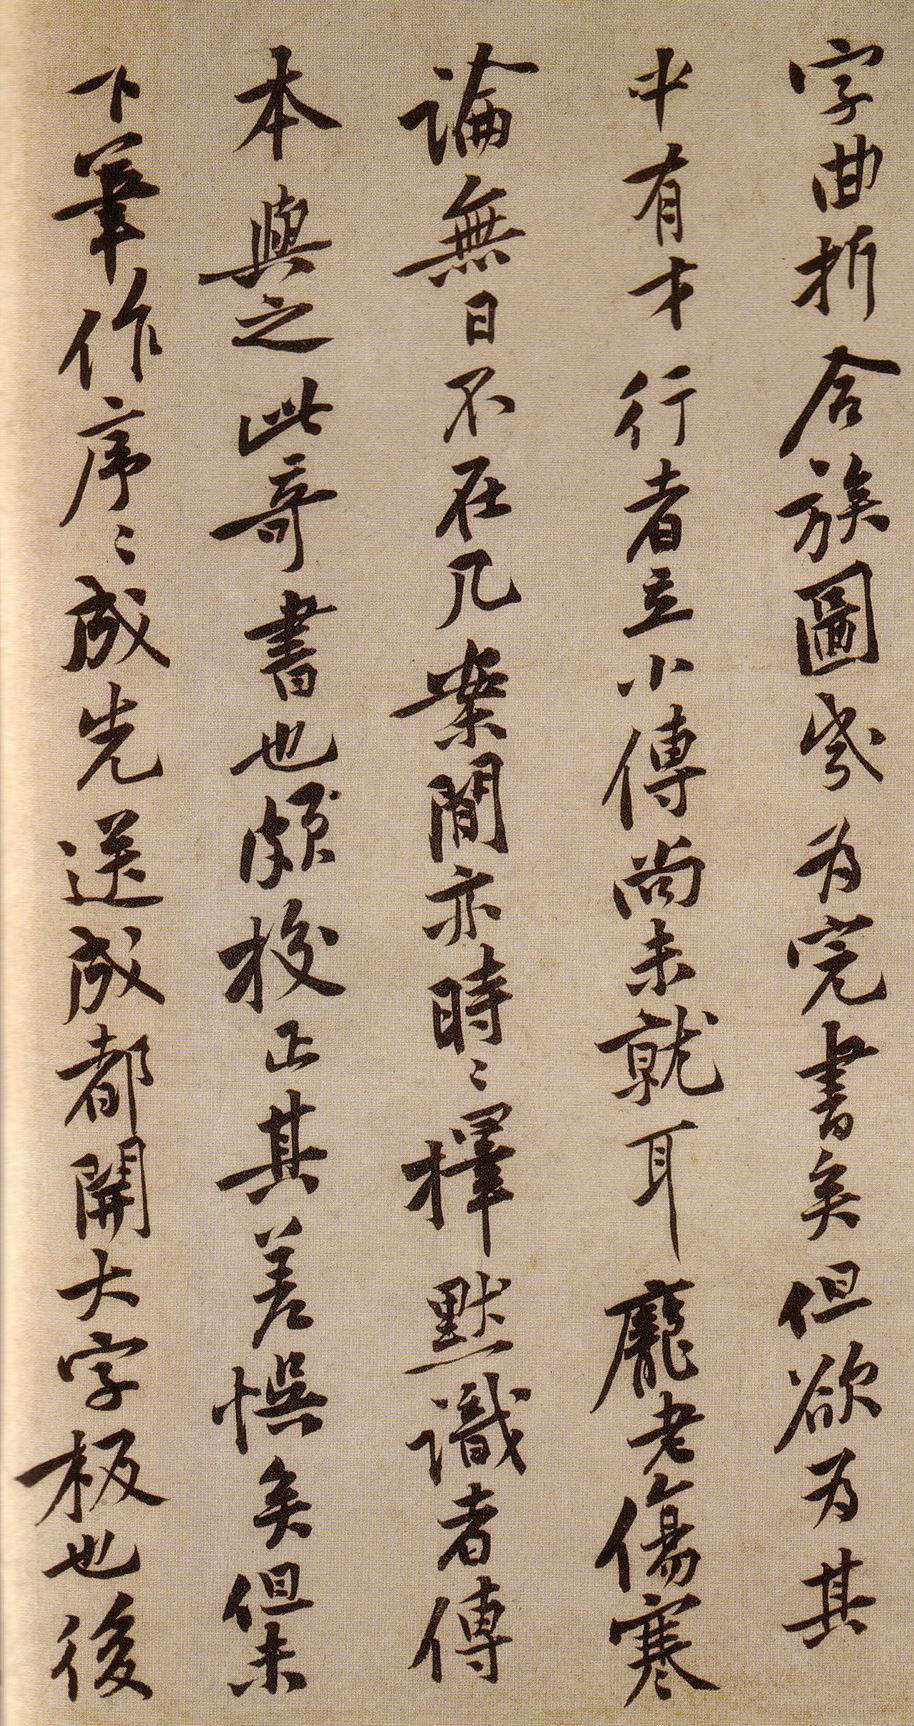 字曲折合族圖岁为完書矣但欲为其
中有才行者立小傳尚未就耳龐老傷寒
論無日不在几案間亦時〻擇默識者傳
本與之此奇書也頗校正其差悮矣但未
下筆作序〻成先送成都開大字板也後